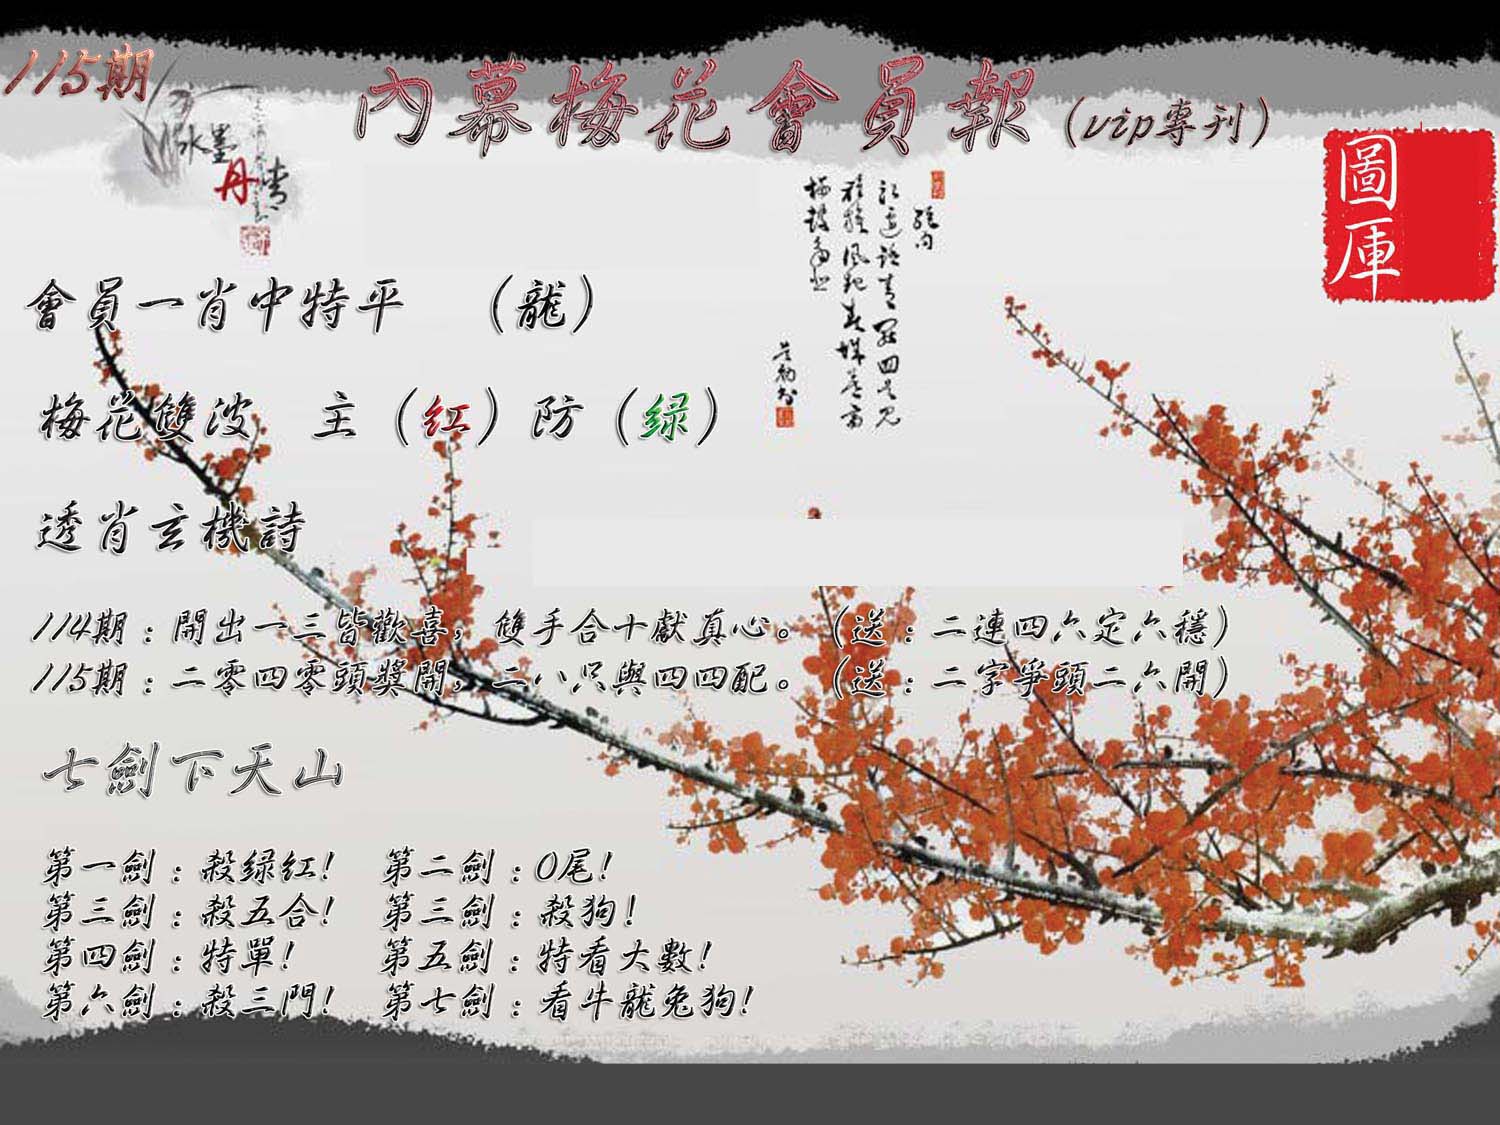 115期
內幕梅花會員報（vip專刊）
水墨
丹青
圖庫
會員一肖中特平　（龍）
梅花雙波　主（紅）防（绿）
透肖玄機詩
114期：開出一三皆歡喜，雙手合十獻真心。（送：二連四六定六穩）
115期：二零四零頭獎開，二八只與四四配。（送：二字爭頭二六開）
七劍下天山
第一劍：殺绿紅！　第二劍：0尾！
第三劍：殺五合！　第三劍：殺狗！
第四劍：特單！　第五劍：特看大數！
第六劍：殺三門！　第七劍：看牛龍兔狗！